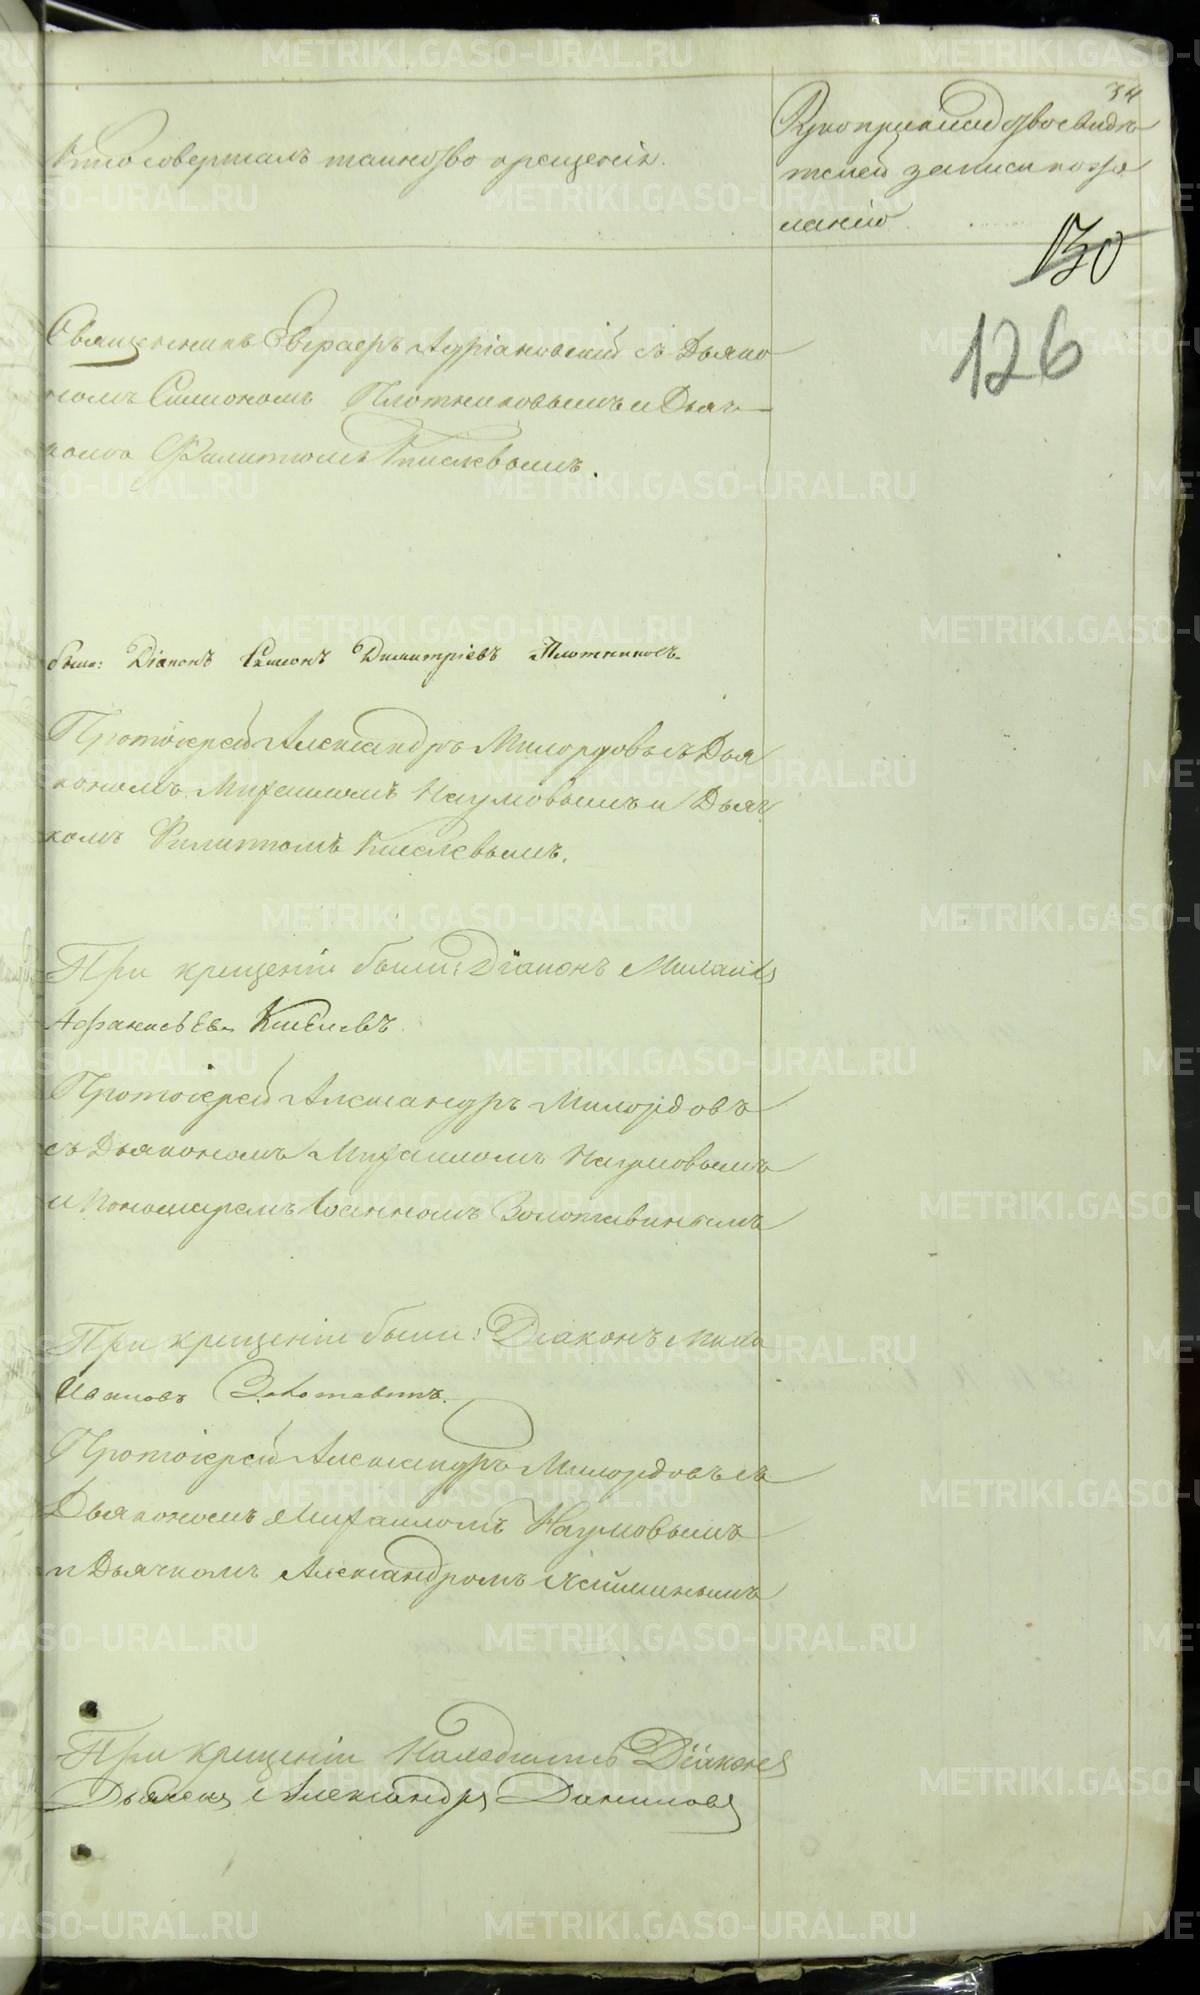 34
Кто совершалъ таинство крещенія.
Рукоприкладство свидѣ
телей записи по же
ланію
130
126
Священникъ Адріановскій съ Дьяко
номъ Симономъ Плотниковымъ и Дьяч
комъ Филиппомъ Киселевымъ.
были: Діаконъ Симеонъ Димитріевъ Плотниковъ.
Протоіерей Александръ Милордовъ съ Дья
кономъ Михаиломъ Наумовымъ и Дьяч
комъ Филиппомъ Киселевымъ.
При крещеніи были: Діаконъ Михаилъ
Киселевъ
Протоіерей Александръ Милордовъ
съ Дьякономъ Михаиломъ Наумовымъ
и Пономаремъ Іоанномъ Золотавинымъ
При крещеніи были: Діаконъ Миха
Ивановъ Золотавинъ.
Протоіерей Александръ Милордовъ съ
Дьякономъ Михаиломъ Наумовымъ
и Дьячкомъ Александромъ
При крещеніи находились Діаконъ
Александръ Даниловъ
METRIKI.GASO-URAL.RU